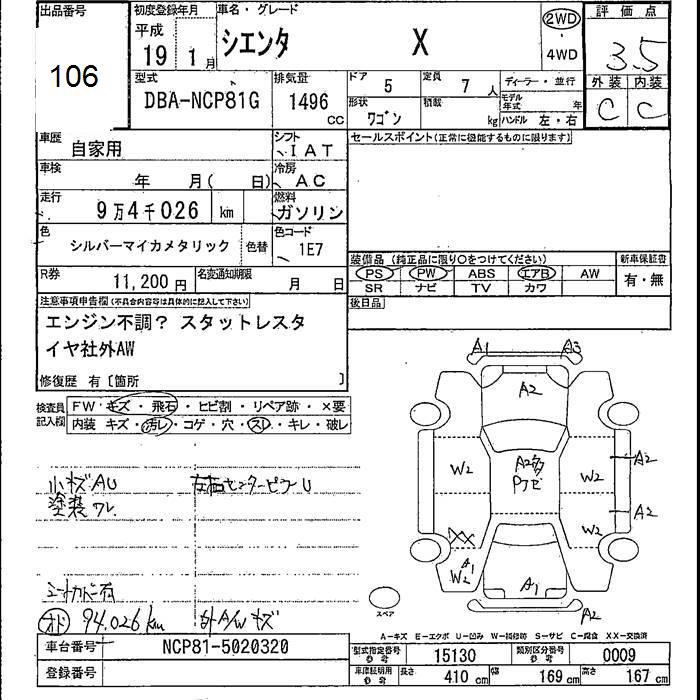 出品番号
106
初度登録年月
平成
19 1月
車名・グレード
シエンタ X
2WD
・
4WD
評価点
3.5
外装 内装
C C
型式
DBA-NCP81G
排気量
1496
CC
ドア 5
定員 7人
ディーラー・並行
形状 ワゴン
積載 kg
モデル年式 年
ハンドル 左・右
車歴
自家用
シフト
IAT
セールスポイント(正常に機能するものに限ります)
車検
年 月( 日)
冷房
AC
走行
9万4千026 km
燃料
ガソリン
色
シルバーマイカメタリック
色替
色コード
1E7
装備品 (純正品に限り○をつけてください)
新車保証書
PS PW ABS エアB AW
有・無
SR ナビ TV カワ
R券
11,200円
名変通知期限
月 日
後日品
注意事項申告欄(不具合内容等は具体的に記入して下さい)
エンジン不調? スタットレスタ
イヤ社外AW
修復歴 有〔箇所 〕
検査員
記入欄
FW・キズ・飛石・ヒビ割・リペア跡・×要
内装 キズ・汚レ・コゲ・穴・スレ・キレ・破レ
小キズAU
塗装ワレ
左右センターピラーU
シートカバー有
オド 94,026km
外A/Wキズ
A1 A3
A2
A2多
W2
W2
A2
W2
A2
XX
A1
W2
A1
A2
スペア
A-キズ E-エクボ U-凹み W-補修跡 S-サビ C-腐食 XX-交換済
車台番号
NCP81-5020320
登録番号
型式指定番号
参考
15130
類別区分番号
参考
0009
車庫証明用
参考
長さ 410 cm
幅 169 cm
高さ 167 cm